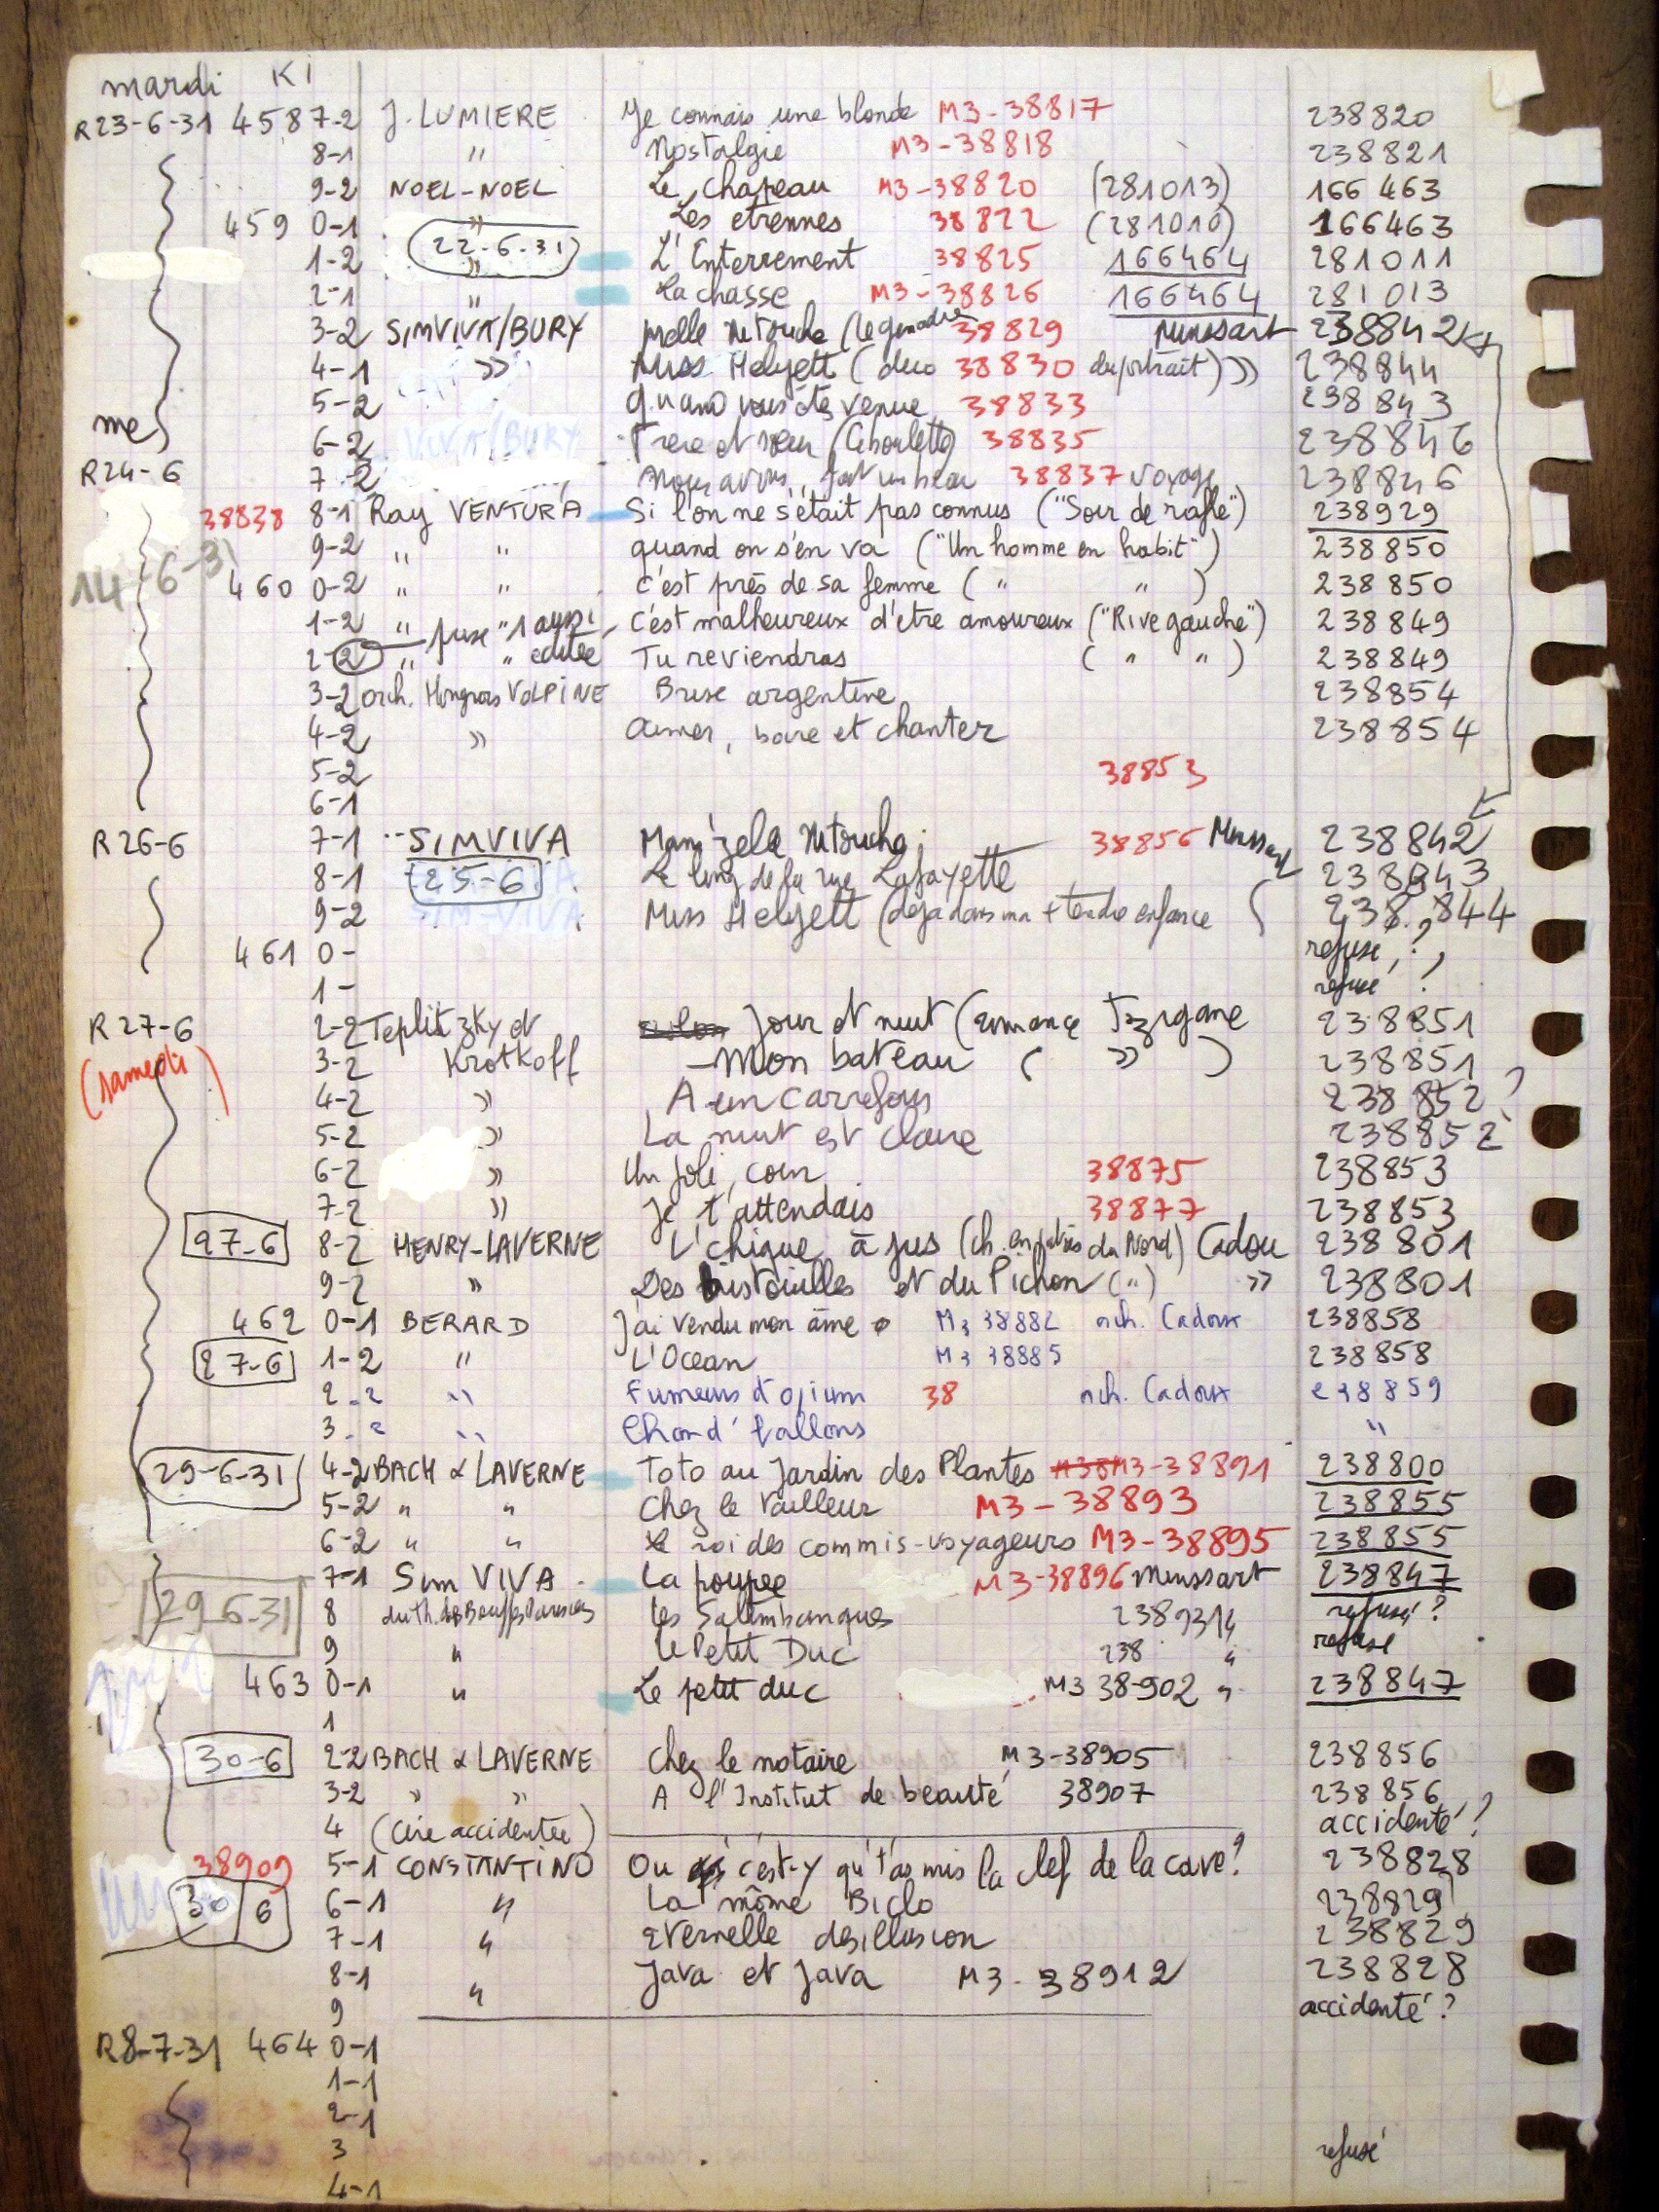 mardi KI
R23-6-31 4587-2 J. LUMIERE Je connais une blonde M3-38817 238820
8-1 " Nostalgie M3-38818 238821
9-2 NOEL-NOEL Le chapeau M3-38820 (281013) 166463
459 0-1 " Les etrennes 38822 (281010) 166463
22-6-31
1-2 " L'Enterrement 38825 166464 281011
2-1 " La chasse M3-38826 166464 281013
3-2 SIMVIVA/BURY Melle Nitouche (legendaire 38829 Minssart 238842
4-1 » Miss Helyett (duo 38830 du portrait) » 238844
5-2 Quand vous êtes venue 38833 238843
me
6-2 VIVA/BURY Frere et soeur (Ciboulette) 38835 238846
R24-6 7-2 Nous avons fait un beau 38837 voyage 238846
38838 8-1 Ray VENTURA Si l'on ne s'était pas connus ("Soir de rafle") 238929
9-2 " " quand on s'en va ("Un homme en habit") 238850
14-6-31
460 0-2 " " c'est près de sa femme ( " " ) 238850
1-2 " c'est malheureux d'etre amoureux ("Rive gauche") 238849
prise "1 aussi
2-2 " " editée Tu reviendras ( " " ) 238849
3-2 orch. Hongrois VOLPINE Brise argentine 238854
4-2 » aimer, boire et chanter 238854
5-2 38853
6-1
R26-6 7-1 SIMVIVA Mam'zelle Nitouche 38856 Minssart 238842
8-1 25-6 Le long de la rue Lafayette 238843
9-2 SIM-VIVA Miss Helyett (deja dans ma + tendre enfance 238.844
461 0- refusé ?
1- refusé ?
R27-6 2-2 Teplitzky et Jour et nuit (romance Tzigane 238851
(samedi) 3-2 Krotkoff -Mon bateau ( » ) 238851
4-2 » A un carrefour 238852 ?
5-2 » La nuit est claire 238852
6-2 » Un joli coin 38875 238853
7-2 » Je t'attendais 38877 238853
27-6 8-2 HENRY-LAVERNE L'chique à jus (ch. en patois du Nord) Cadou 238801
9-2 » Des histouilles et du Pichon (") » 238801
462 0-1 BERARD J'ai vendu mon âme M3 38882 orch. Cadoux 238858
27-6 1-2 " L'Ocean M3 38885 238858
2-2 " Fumeurs d'opium 38 orch. Cadoux 238859
3-2 " Chand' ballons "
29-6-31 4-2 BACH & LAVERNE Toto au Jardin des Plantes M3-38891 238800
5-2 " " Chez le tailleur M3-38893 238855
6-2 " " Le roi des commis-voyageurs M3-38895 238855
7-1 Sim VIVA La poupée M3-38896 Minssart 238847
29 6-31 8 du th. des Bouffes Parisiens Les Saltimbanques 238931 " refusé ?
9 " Le Petit Duc 238 " refusé
463 0-1 " Le petit duc M3 38-902 " 238847
1
30-6 2-2 BACH & LAVERNE Chez le notaire M3-38905 238856
3-2 » » A l'Institut de beauté 38907 238856
4 (Cire accidentée) accidenté ?
38909 5-1 CONSTANTINO Ou c'est-y qu't'as mis la clef de la cave? 238828
30 6 6-1 " La môme Biclo 238829
7-1 " Eternelle desillusion 238829
8-1 " Java et Java M3-38912 238828
9 accidenté ?
R8-7-31 464 0-1
1-1
2-1
3 refusé
4-1